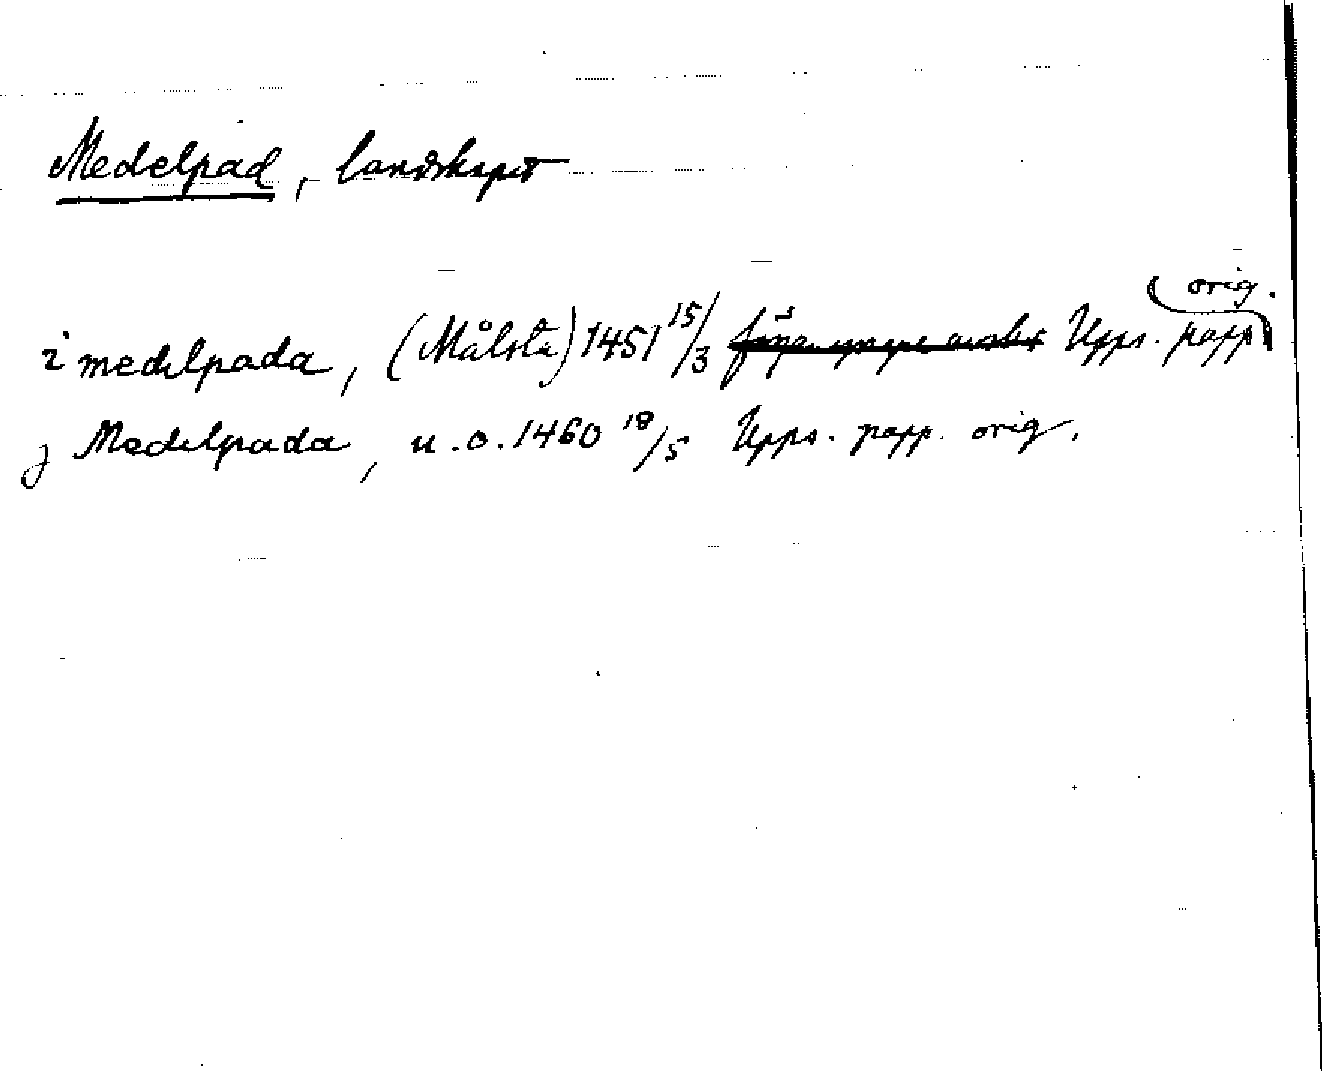 Medelpad, landskapet
i medelpada, (Målsta) 1451 15/3 Upps. papp. orig.
j Medelpada, u.o. 1460 18/5 Upps. papp. orig.